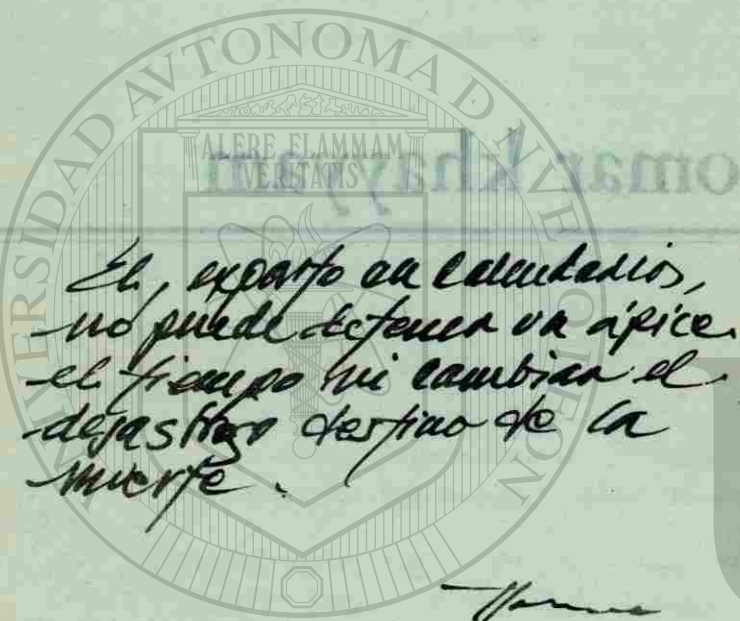 UNIVERSIDAD AUTONOMA DE NUEVO LEON
ALERE FLAMMAM
VERITATIS
omar khayyam
El, experto en calendarios,
no puede detener un ápice
el tiempo ni cambiar el
desastroso destino de la
muerte.